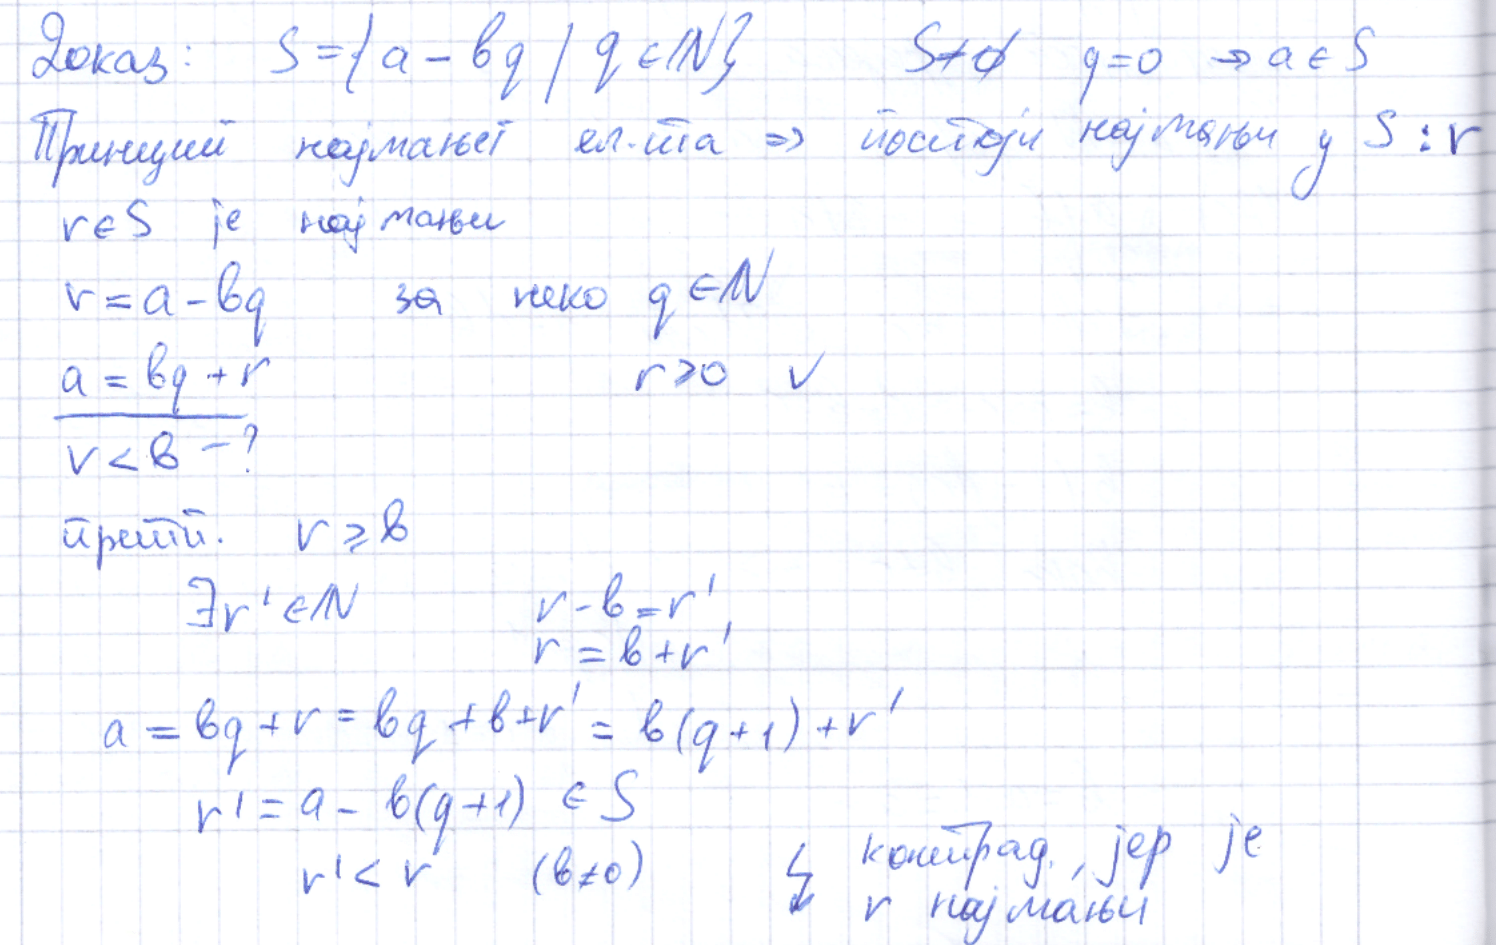 Доказ: S = {a - bq | q ∈ ℕ} S ≠ ∅ q = 0 → a ∈ S
Принцип најмањег ел-та ⇒ постоји најмањи у S : r
r ∈ S је најмањи
r = a - bq за неко q ∈ ℕ
a = bq + r r ≥ 0 ✓
r < b - ?
претп. r ≥ b
∃r' ∈ ℕ r - b = r'
r = b + r'
a = bq + r = bq + b + r' = b(q+1) + r'
r' = a - b(q+1) ∈ S
r' < r (b ≠ 0) ↯ контрад., јер је
r најмањи